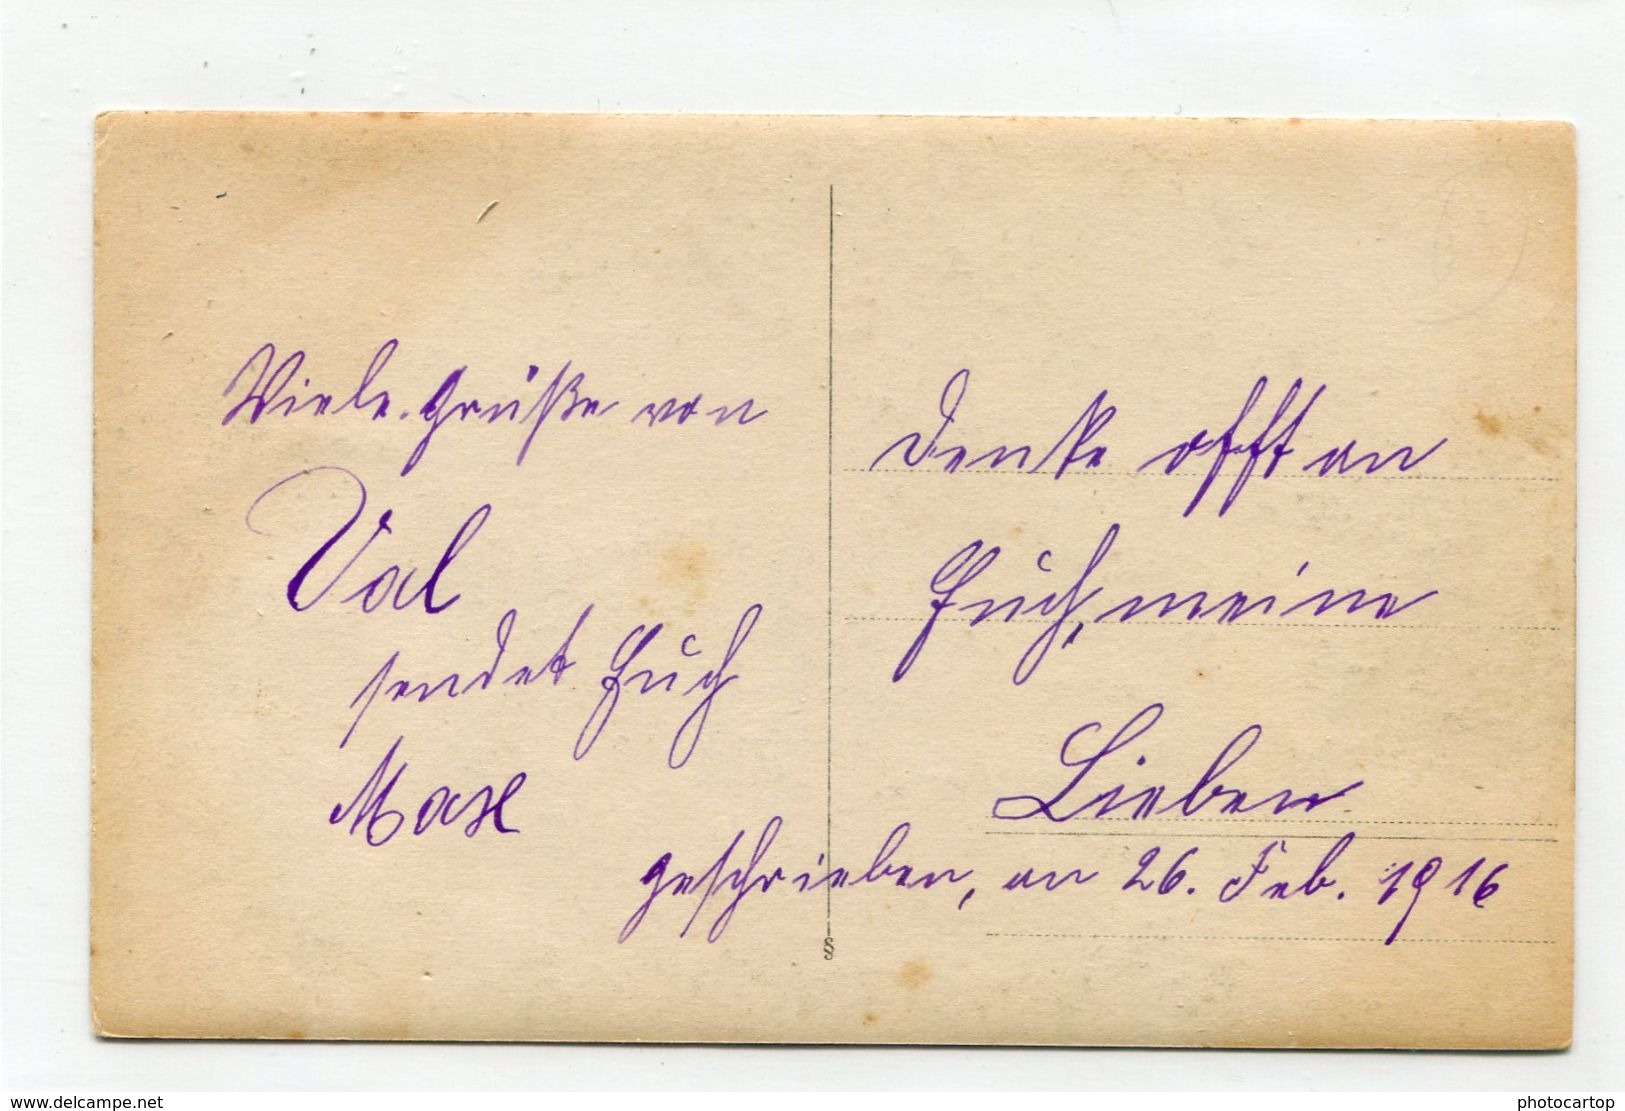 Viele Grüße von
Val
sendet Euch
Max
Denke offt an
Euch, meine
Lieben
geschrieben, an 26. Feb. 1916
§
www.delcampe.net
photocartop